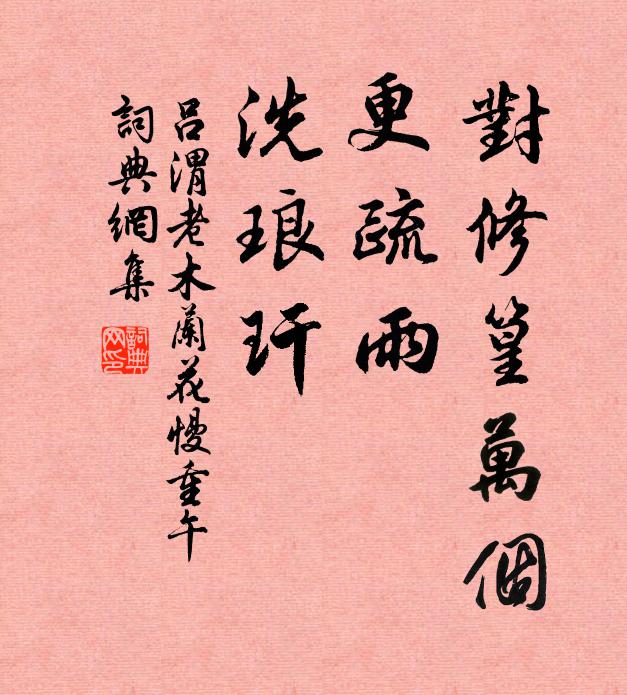 對修篁萬個
更疏雨
洗琅玕
呂渭老木蘭花慢重午
詞典網集
詞典網印